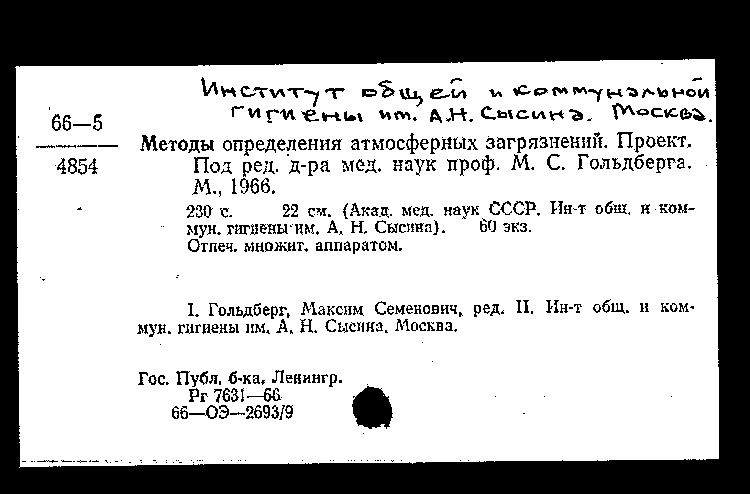 Институт общей и коммунальной
гигиены им. А.Н. Сысина. Москва.
66—5
4854
Методы определения атмосферных загрязнений. Проект.
Под ред. д-ра мед. наук проф. М. С. Гольдберга.
М., 1966.
230 с. 22 см. (Акад. мед. наук СССР. Ин-т общ. и ком-
мун. гигиены им. А. Н. Сысина). 60 экз.
Отпеч. множит. аппаратом.
I. Гольдберг, Максим Семенович, ред. II. Ин-т общ. и ком-
мун. гигиены им. А. Н. Сысина. Москва.
Гос. Публ. б-ка, Ленингр.
Рг 7631—66
66—ОЭ—2693/9